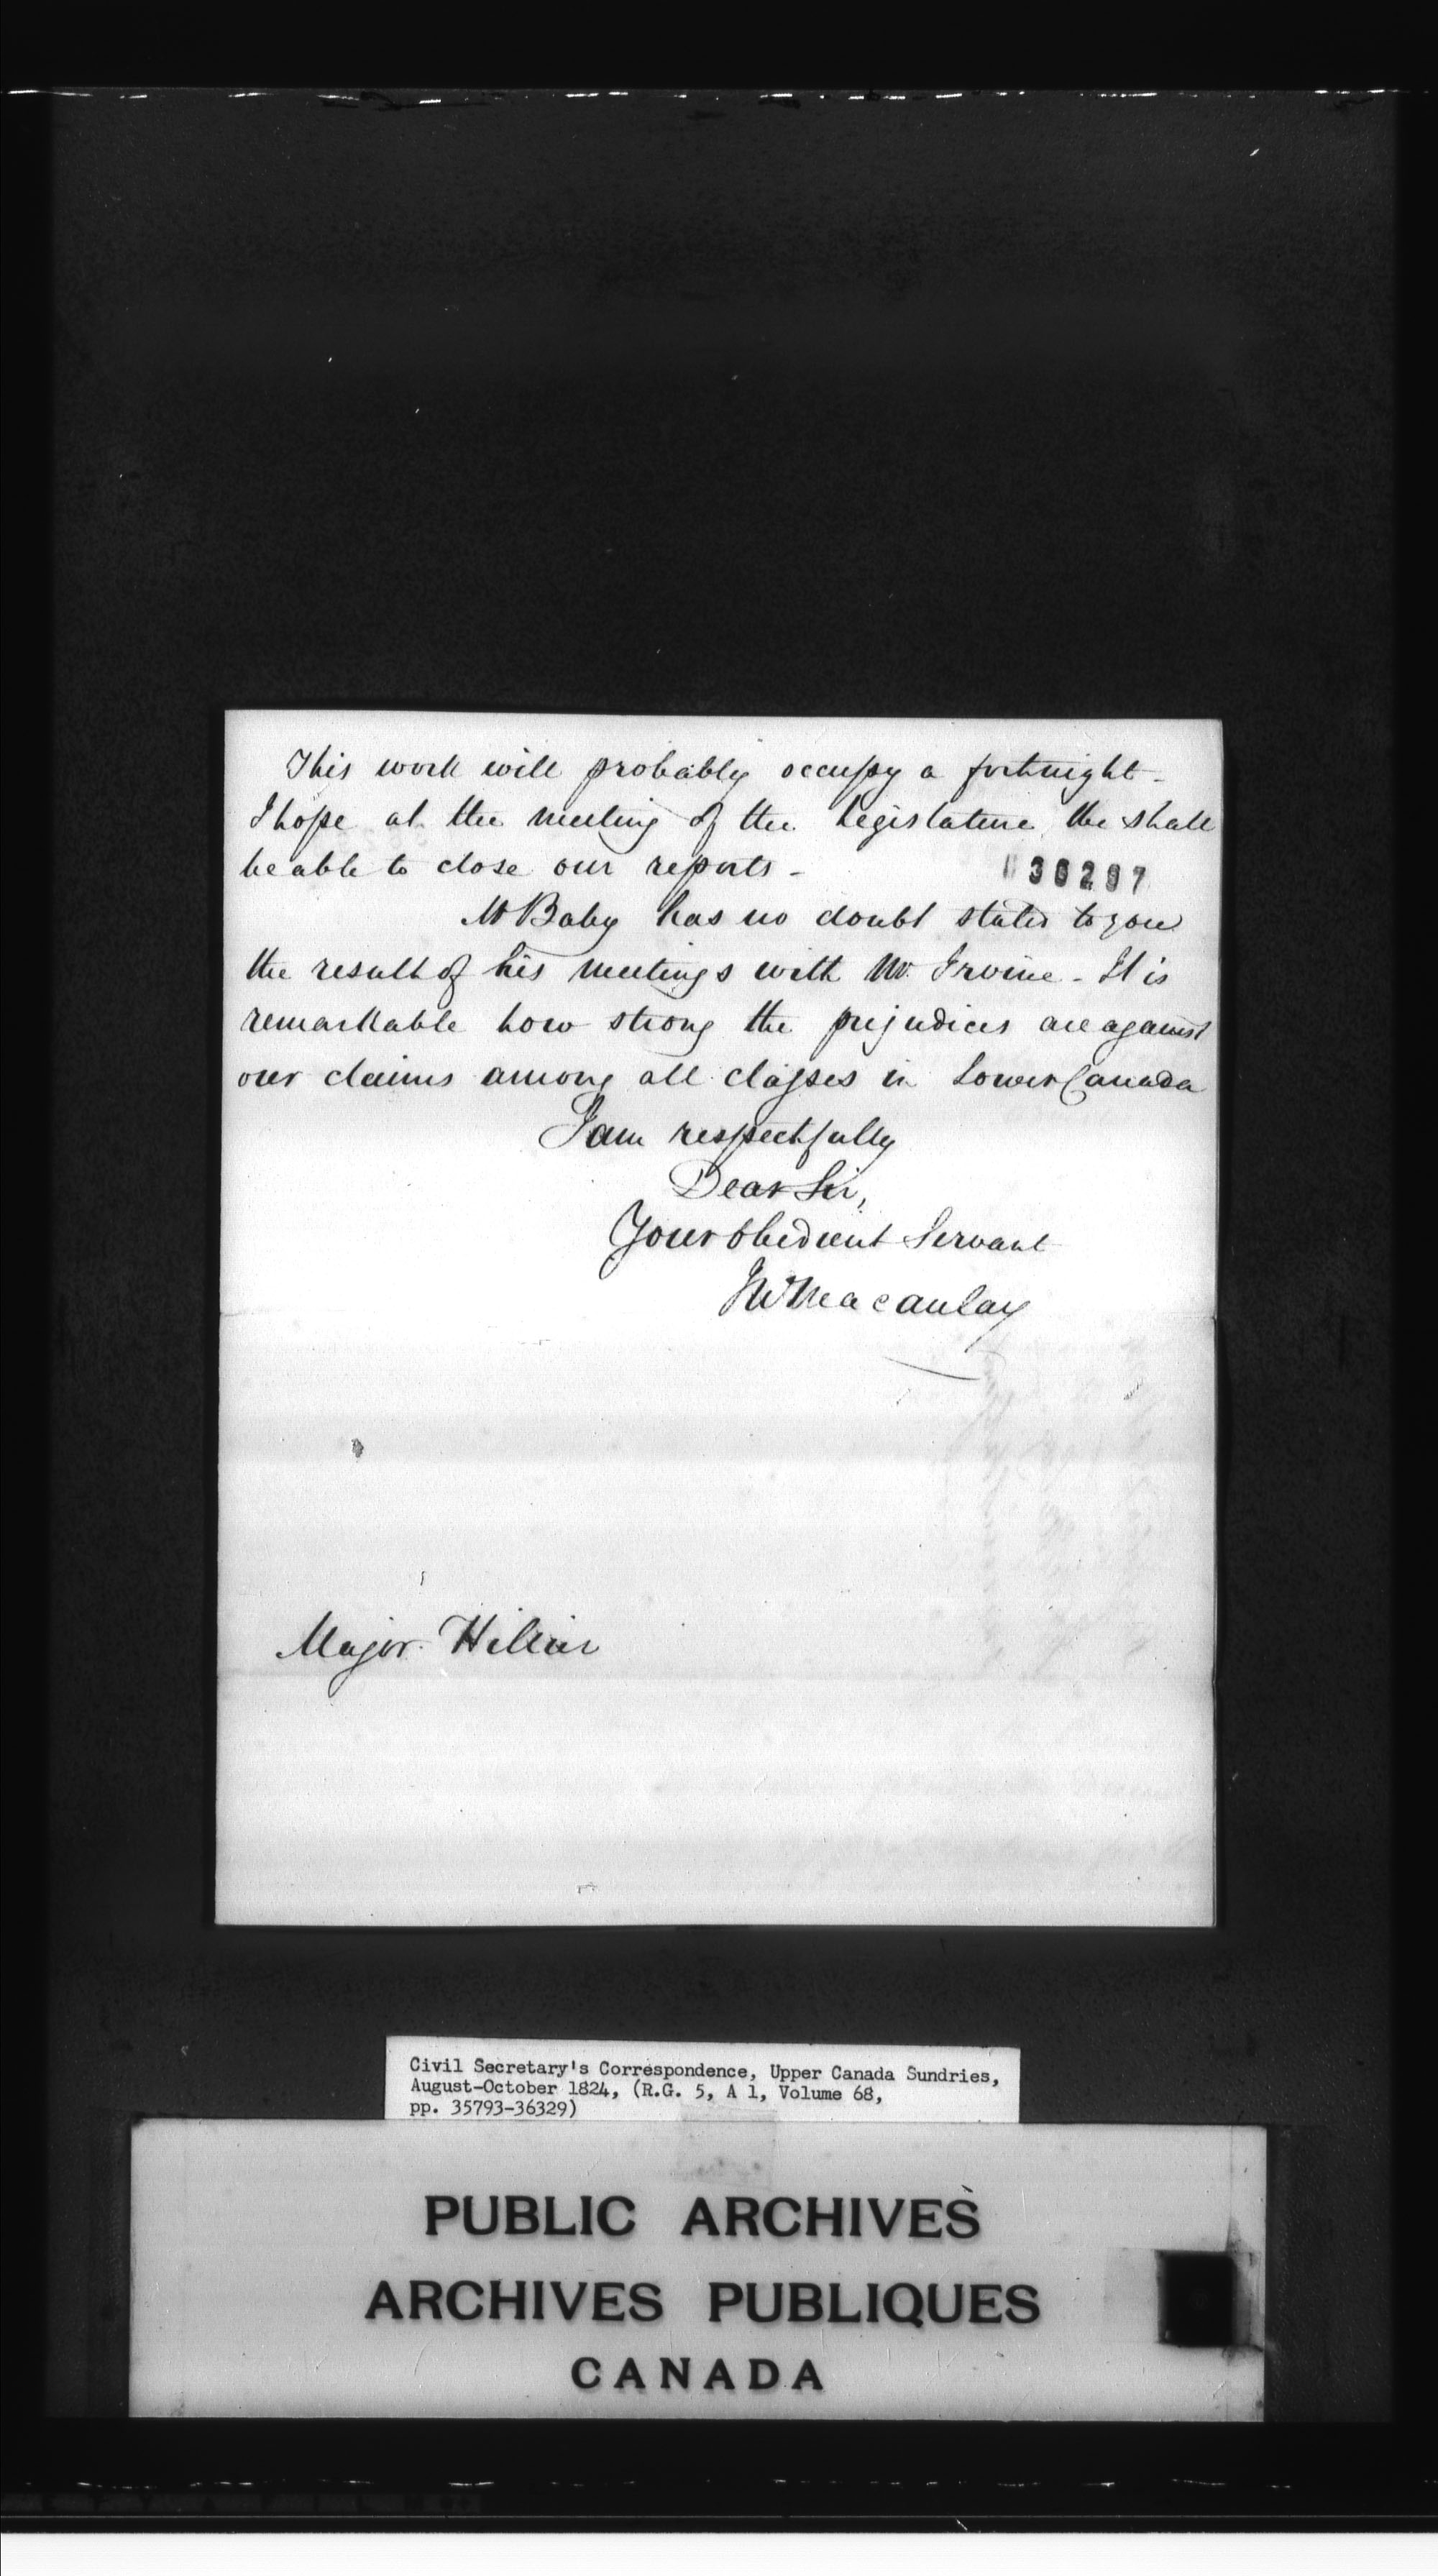 This work will probably occupy a fortnight -
I hope at the meeting of the Legislature We shall
be able to close our reports -
36297
Mr Baby has no doubt stated to you
the result of his meetings with Mr. Irvine - It is
remarkable how strong the prejudices are against
our claims among all classes in Lower Canada
I am respectfully
Dear Sir,
Your obedient Servant
Jn Macaulay
Major Hillier
Civil Secretary's Correspondence, Upper Canada Sundries,
August-October 1824, (R.G. 5, A 1, Volume 68,
pp. 35793-36329)
PUBLIC ARCHIVES
ARCHIVES PUBLIQUES
CANADA